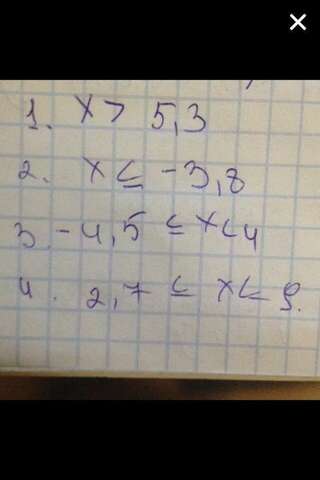 1. x > 5,3
2. x ≤ -3,8
3 -4,5 ≤ x < 4
4. 2,7 ≤ x ≤ 9.